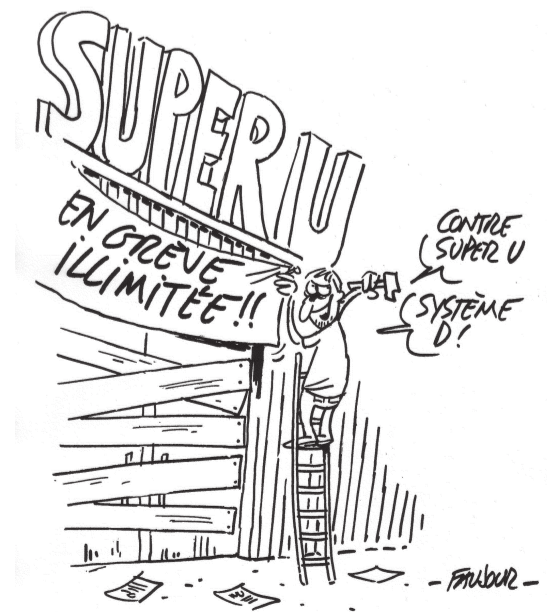 SUPER U
EN GRÈVE
ILLIMITÉE!!
CONTRE
SUPER U
SYSTÈME
D!
- FAUJOUR -